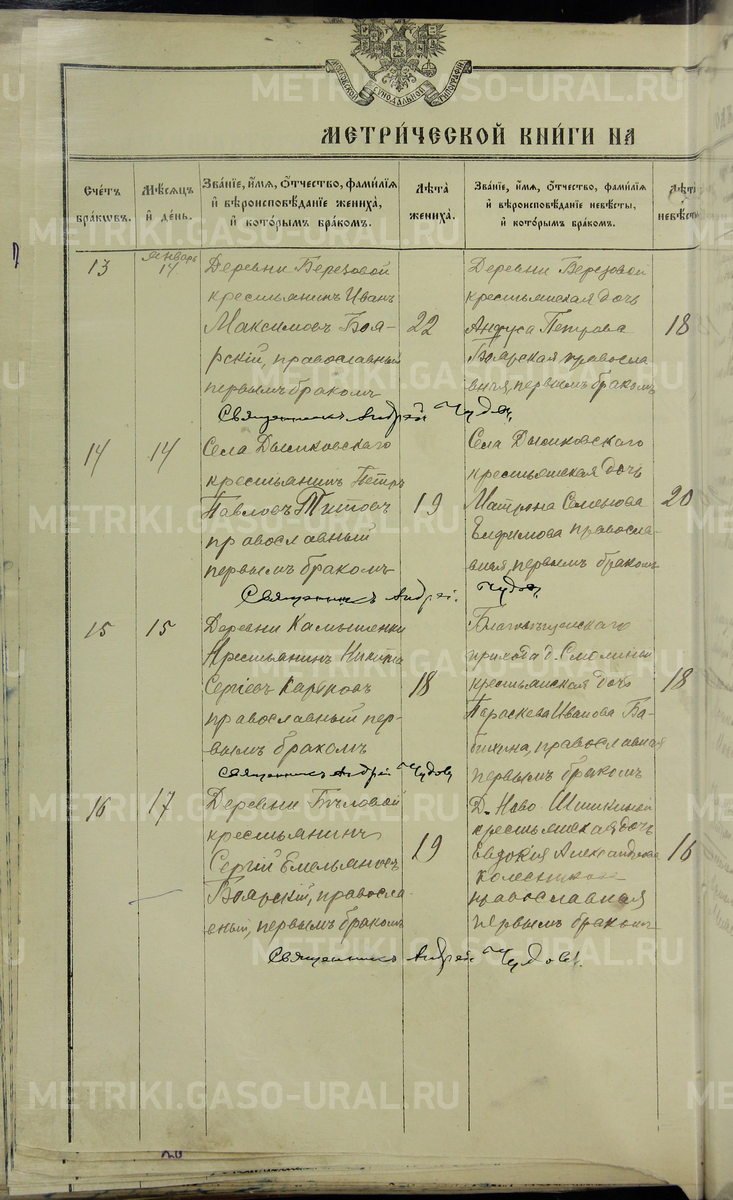 МОСКОВСКОЙ СѴНОДАЛЬНОЙ ТИПОГРАФІИ
МЕТРИ́ЧЕСКОЙ КНИ́ГИ НА
Сче́тъ бра́кѡвъ.
Мѣ́сѧцъ и҆ де́нь.
Зва́нїе, и҆́мѧ, ѻ҆́тчество, фами́лїѧ
и҆ вѣроисповѣ́данїе жениха̀,
и҆ кото́рымъ бра́комъ.
Лѣ́та жениха̀.
Зва́нїе, и҆́мѧ, ѻ҆́тчество, фами́лїѧ
и҆ вѣроисповѣ́данїе невѣ́сты,
и҆ кото́рымъ бра́комъ.
Лѣ́та невѣ́сты
13
январь
14
Деревни Березовой
крестьянинъ Иванъ
Максимовъ Боя-
рскій, православный
первымъ бракомъ
22
Деревни Березовой
крестьянская дочь
Петрова
Боярская правосла
вная, первымъ бракомъ
18
Священникъ Андрей Чудовъ
14
14
Села Дымковскаго
крестьянинъ Петръ
Павловъ Титовъ
православный
первымъ бракомъ
19
Села Дымковскаго
крестьянская дочь
Матрона Семенова
Ефимова правосла-
вная, первымъ бракомъ
20
Священникъ Андрей Чудовъ
15
15
Деревни Камышенки
крестьянинъ Никита
Сергіевъ Карпковъ
православный пер-
вымъ бракомъ
18
Благовѣщенскаго
прихода д. Смолиной
крестьянская дочь
Параскева Иванова Ба-
бикина, православная
первымъ бракомъ
18
Священникъ Андрей Чудовъ
16
17
Деревни Бѣловой
крестьянинъ
Сергій Емельяновъ
Боярскій, правосла
вный, первымъ бракомъ
19
Д. Ново-Шишкиной
крестьянская дочь
Евдокия Александрова
Колесникова
православная
первымъ бракомъ
16
Священникъ Андрей Чудовъ.
METRIKI.GASO-URAL.RU